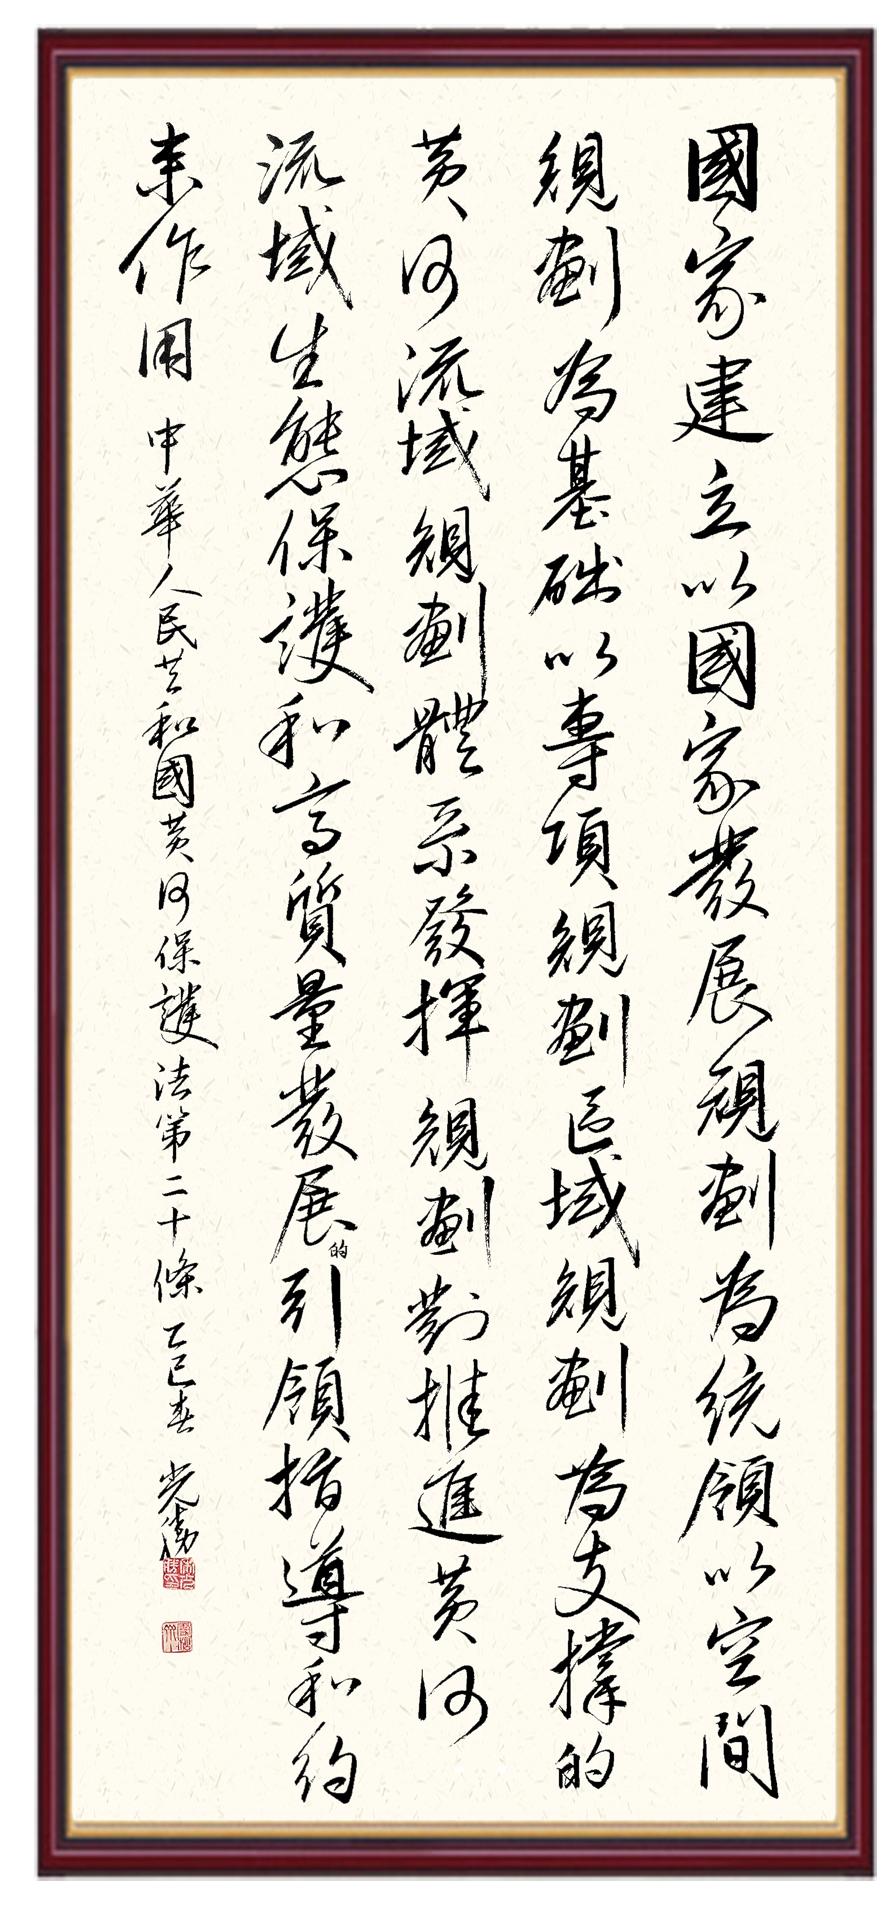 國家建立以國家發展規劃為統領以空間
規劃為基礎以專項規劃區域規劃為支撐的
黄河流域規劃體系發揮規劃對推進黄河
流域生態保護和高質量發展的引領指導和約
束作用
中華人民共和國黄河保護法第二十條 乙巳春 光勝